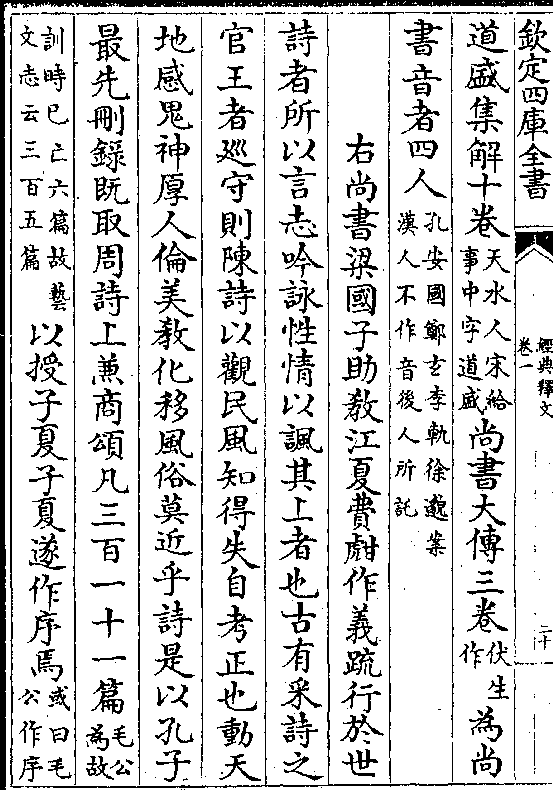 欽定四庫全書
經典釋文
卷一
二十
道盛集解十卷天水人宋給事中字道盛尚書大傳三卷伏生作為尚
書音者四人孔安國鄭玄李軌徐邈案漢人不作音後人所託
右尚書梁國子助教江夏費甝作義疏行於世
詩者所以言志吟詠性情以諷其上者也古有采詩之
官王者廵守則陳詩以觀民風知得失自考正也動天
地感鬼神厚人倫美教化移風俗莫近乎詩是以孔子
最先刪錄既取周詩上兼商頌凡三百一十一篇毛公為故
訓時已亡六篇故藝文志云三百五篇以授子夏子夏遂作序焉或曰毛公作序